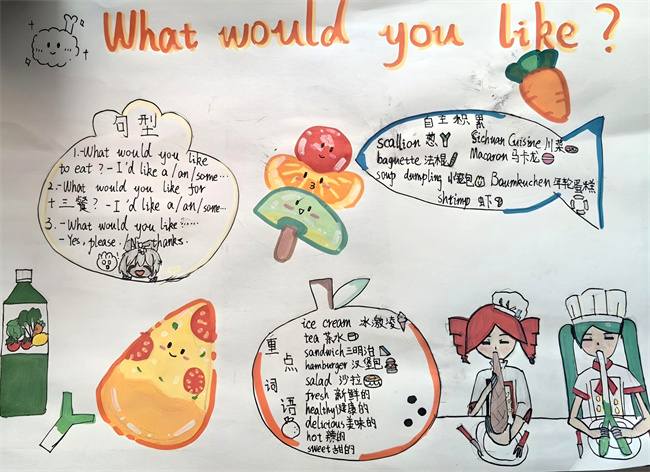 What would you like?
句型
1.-What would you like
to eat? -I'd like a/an/some...
2.-What would you like for
+三餐? -I'd like a/an/some...
3. -What would you like......
-Yes, please. / No, thanks.
自主积累
scallion 葱
Sichuan Cuisine 川菜
baguette 法棍
Macaron 马卡龙
soup dumpling 小笼包
Baumkuchen 年轮蛋糕
shrimp 虾
重点词语
ice cream 冰激凌
tea 茶水
sandwich 三明治
hamburger 汉堡包
salad 沙拉
fresh 新鲜的
healthy 健康的
delicious 美味的
hot 辣的
sweet 甜的